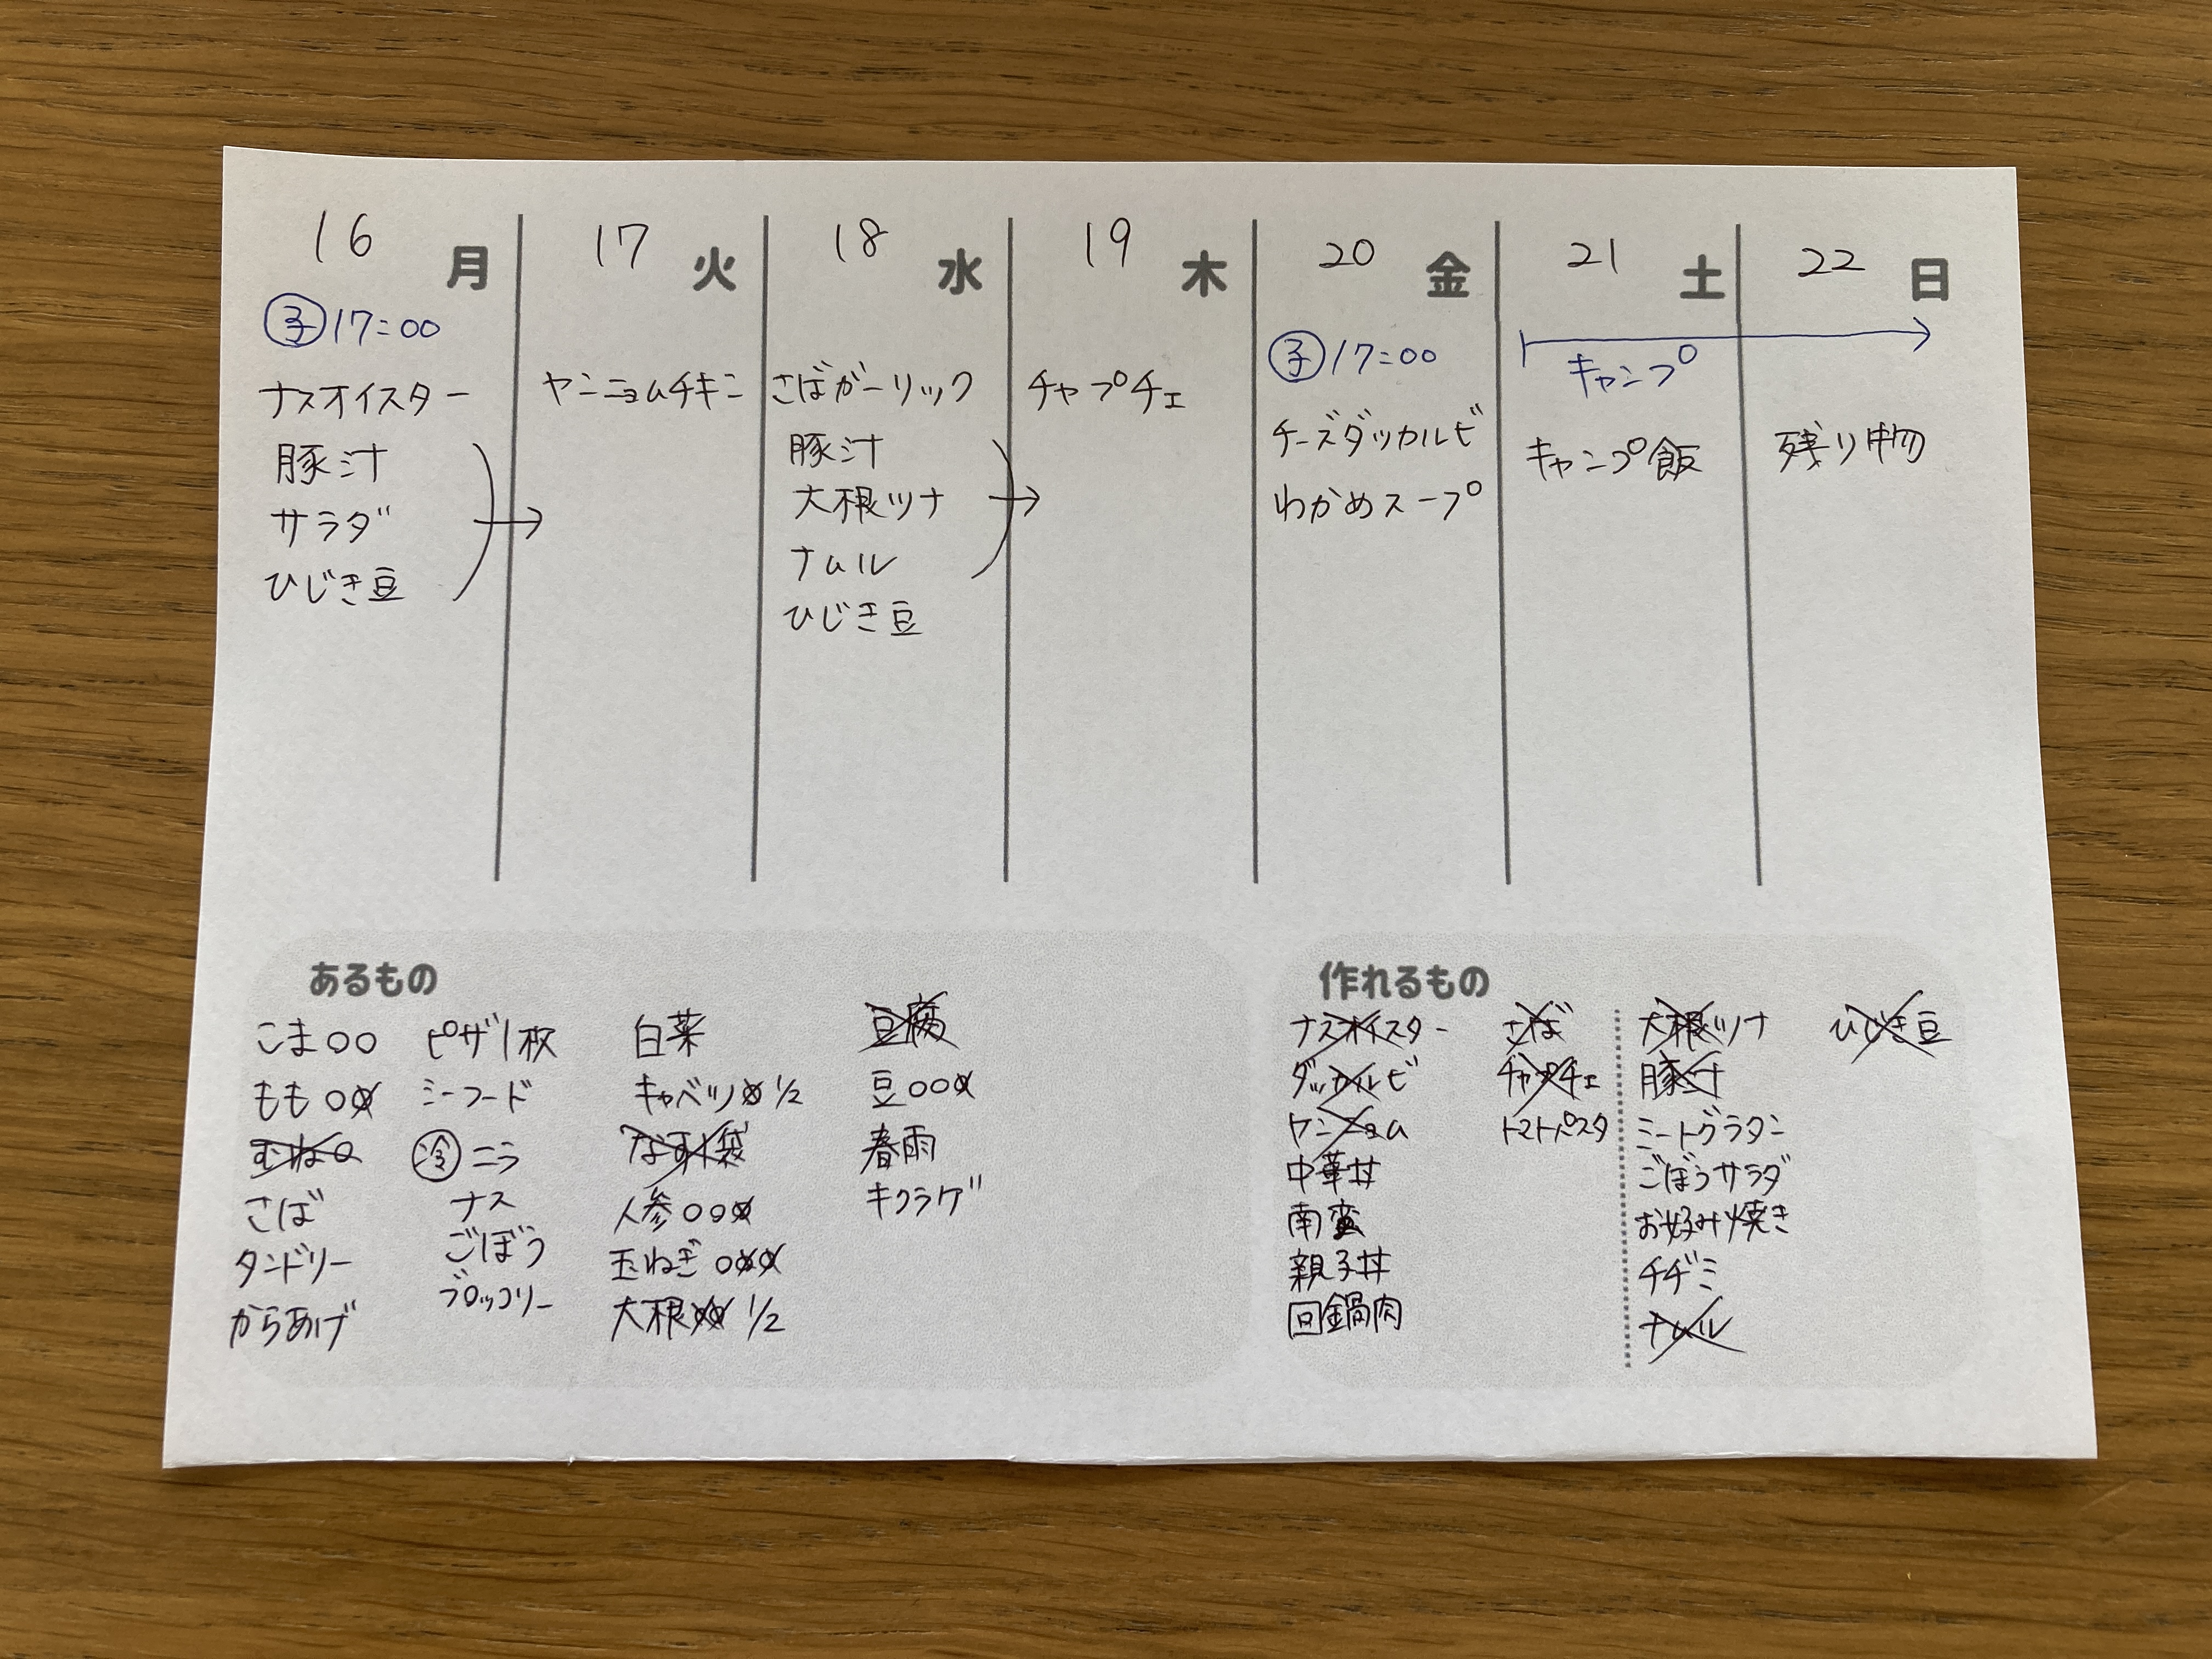 16 月
子 17:00
ナスオイスター
豚汁
サラダ
ひじき豆
17 火
ヤンニョムチキン
18 水
さばガーリック
豚汁
大根ツナ
ナムル
ひじき豆
19 木
チャプチェ
20 金
子 17:00
チーズダッカルビ
わかめスープ
21 土
キャンプ
キャンプ飯
22 日
残り物
あるもの
こま〇〇
もも〇〇
むね〇
さば
タンドリー
からあげ
ピザ1枚
シーフード
冷 ニラ
ナス
ごぼう
ブロッコリー
白菜
キャベツ〇 1/2
なす1袋
人参〇〇〇
玉ねぎ〇〇〇
大根〇〇 1/2
豆腐
豆〇〇〇
春雨
キクラゲ
作れるもの
ナスオイスター
ダッカルビ
ヤンニョム
中華丼
南蛮
親子丼
回鍋肉
さば
チャプチェ
トマトパスタ
大根ツナ
豚汁
ミートグラタン
ごぼうサラダ
お好み焼き
チヂミ
ナムル
ひじき豆